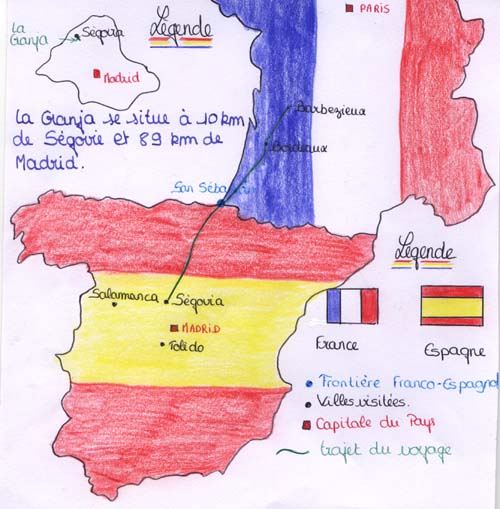 La
Granja
Ségovia
Madrid
Légende
PARIS
La Granja se situe à 10 km
de Ségovie et 89 km de
Madrid.
Barbezieux
Bordeaux
San Sébastian
Salamanca
Ségovia
MADRID
Tolédo
Légende
France
Espagne
Frontière Franco-Espagnol
Villes visitées.
Capitale du Pays
trajet du voyage